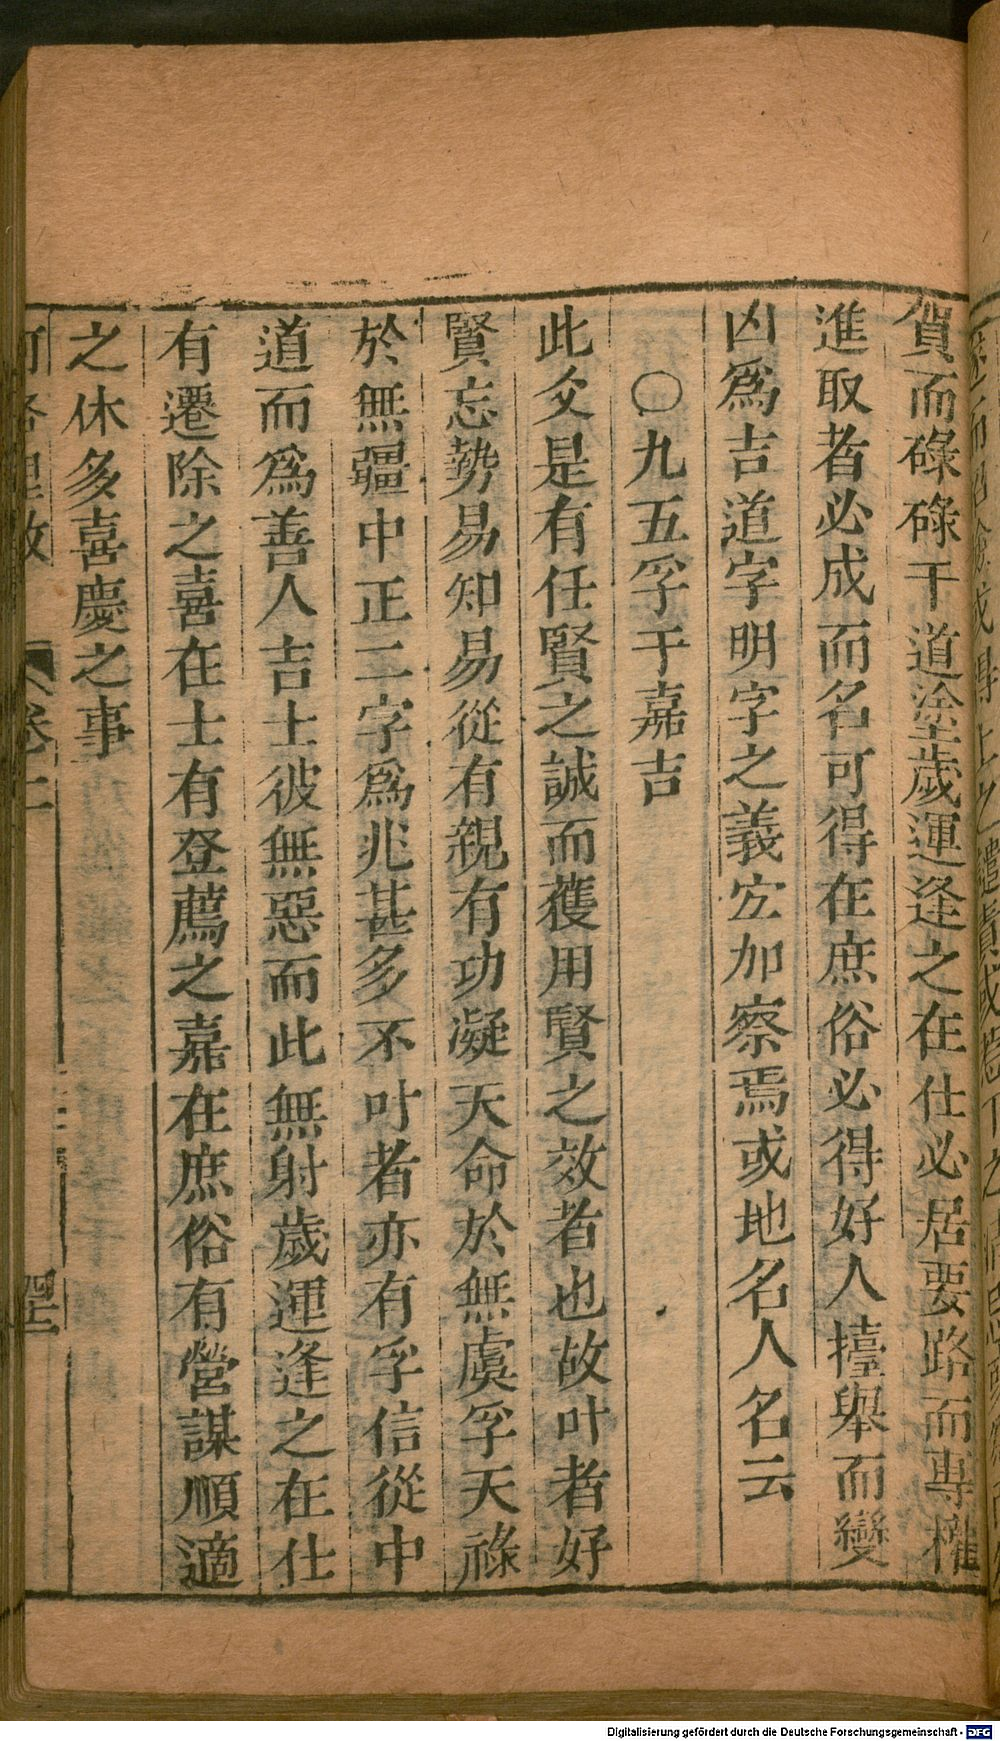 賀而碌碌于道塗歲運逢之在仕必居要路而專權
進取者必成而名可得在庶俗必得好人擡舉而變
凶爲吉道字明字之義宜加察焉或地名人名云
○九五孚于嘉吉
此爻是有任賢之誠而獲用賢之效者也故叶者好
賢忘勢易知易從有親有功凝天命於無虞孚天祿
於無疆中正二字爲兆甚多不叶者亦有孚信從中
道而爲善人吉士彼無惡而此無射歲運逢之在仕
有遷除之喜在士有登薦之嘉在庶俗有營謀順適
之休多喜慶之事
Digitalisierung gefördert durch die Deutsche Forschungsgemeinschaft - DFG